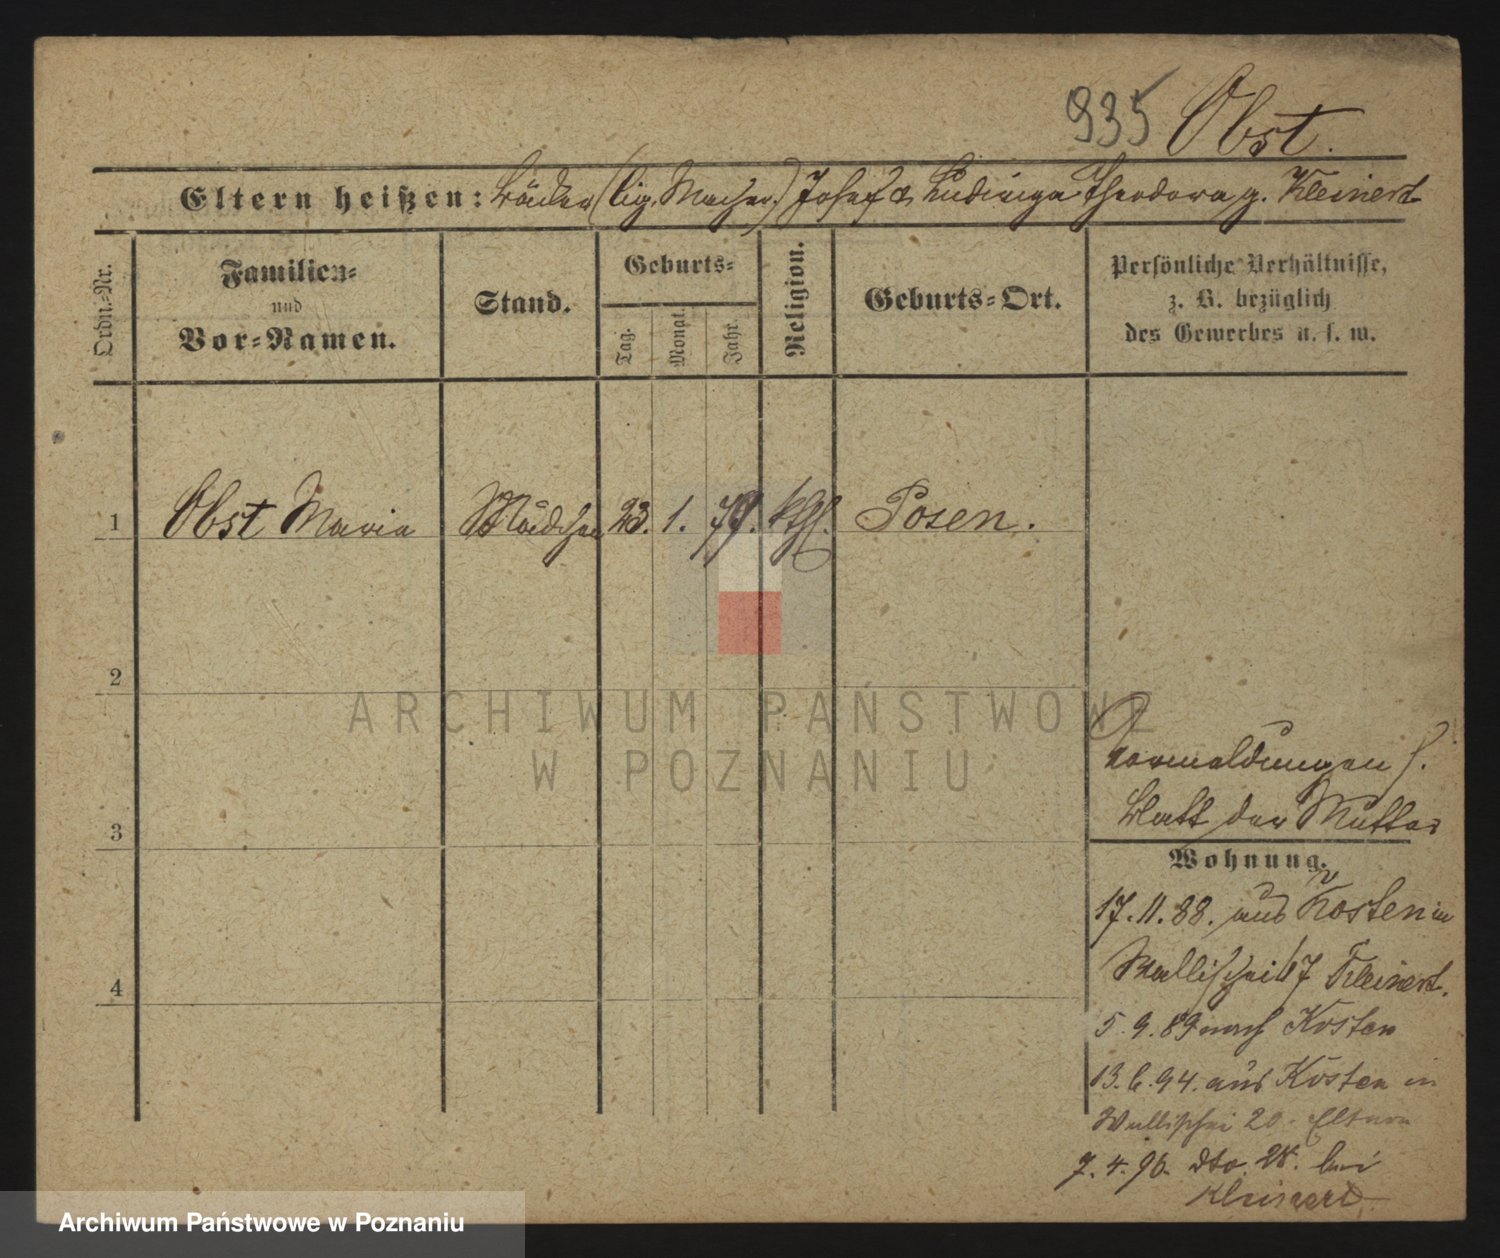 935 Obst.
Eltern heißen: Bäcker (Cig. Macher) Josef & Ludwiga Theodora g. Kleinert
Ordn.-Nr.
Familien-
und
Vor-Namen.
Stand.
Geburts-
Tag.
Monat.
Jahr.
Religion.
Geburts-Ort.
Persönliche Verhältnisse,
z. B. bezüglich
des Gewerbes u. s. w.
1 Obst Maria Mädchen 23. 1. 79. kthl. Posen.
2
3
4
Vormeldungen s.
Blatt der Mutter
Wohnung.
17.11.88. aus Kosten in
Wallischei 17 Kleinert.
5.9.89 nach Kosten
13.6.94. aus Kosten in
Wallischei 20. Eltern
7.4.96. dto. 28. bei
Kleinert
ARCHIWUM PAŃSTWOWE
W POZNANIU
Archiwum Państwowe w Poznaniu